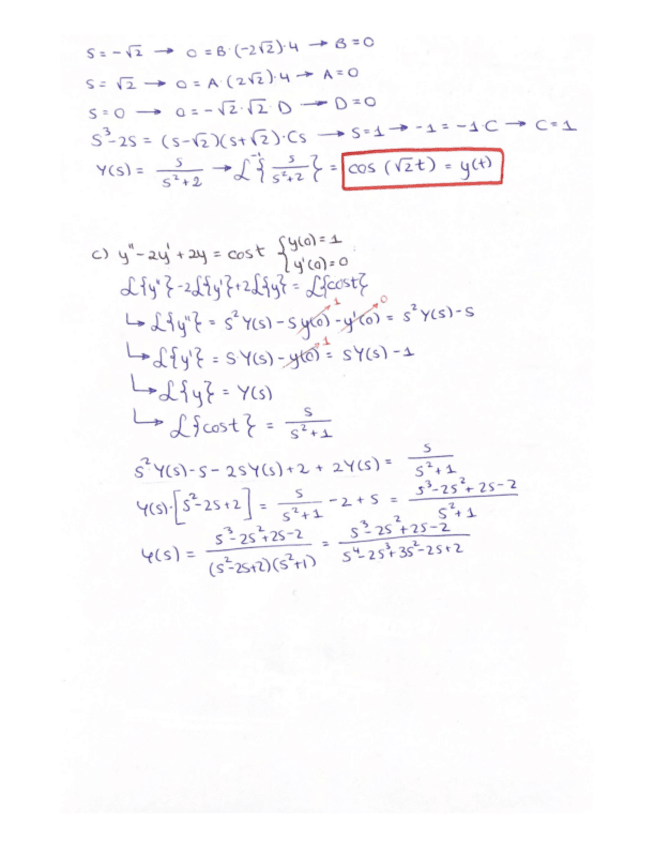 S = -√2 → 0 = B·(-2√2)·4 → B = 0
S = √2 → 0 = A·(2√2)·4 → A = 0
S = 0 → 0 = -√2·√2 D → D = 0
S³-2S = (S-√2)(S+√2)·CS → S = 1 → -1 = -1C → C = 1
Y(S) = S/(S²+2) → ℒ⁻¹{S/(S²+2)} = cos (√2t) = y(t)
c) y'' - 2y' + 2y = cost { y(0) = 1
y'(0) = 0
ℒ{y''} - 2ℒ{y'} + 2ℒ{y} = ℒ{cost}
↳ ℒ{y''} = S² Y(S) - S y(0) - y'(0) = S² Y(S) - S
1 0
↳ ℒ{y'} = S Y(S) - y(0) = S Y(S) - 1
1
↳ ℒ{y} = Y(S)
↳ ℒ{cost} = S/(S²+1)
S² Y(S) - S - 2S Y(S) + 2 + 2Y(S) = S/(S²+1)
Y(S)·[S²-2S+2] = S/(S²+1) - 2 + S = (S³-2S²+2S-2)/(S²+1)
Y(S) = (S³-2S²+2S-2)/((S²-2S+2)(S²+1)) = (S³-2S²+2S-2)/(S⁴-2S³+3S²-2S+2)